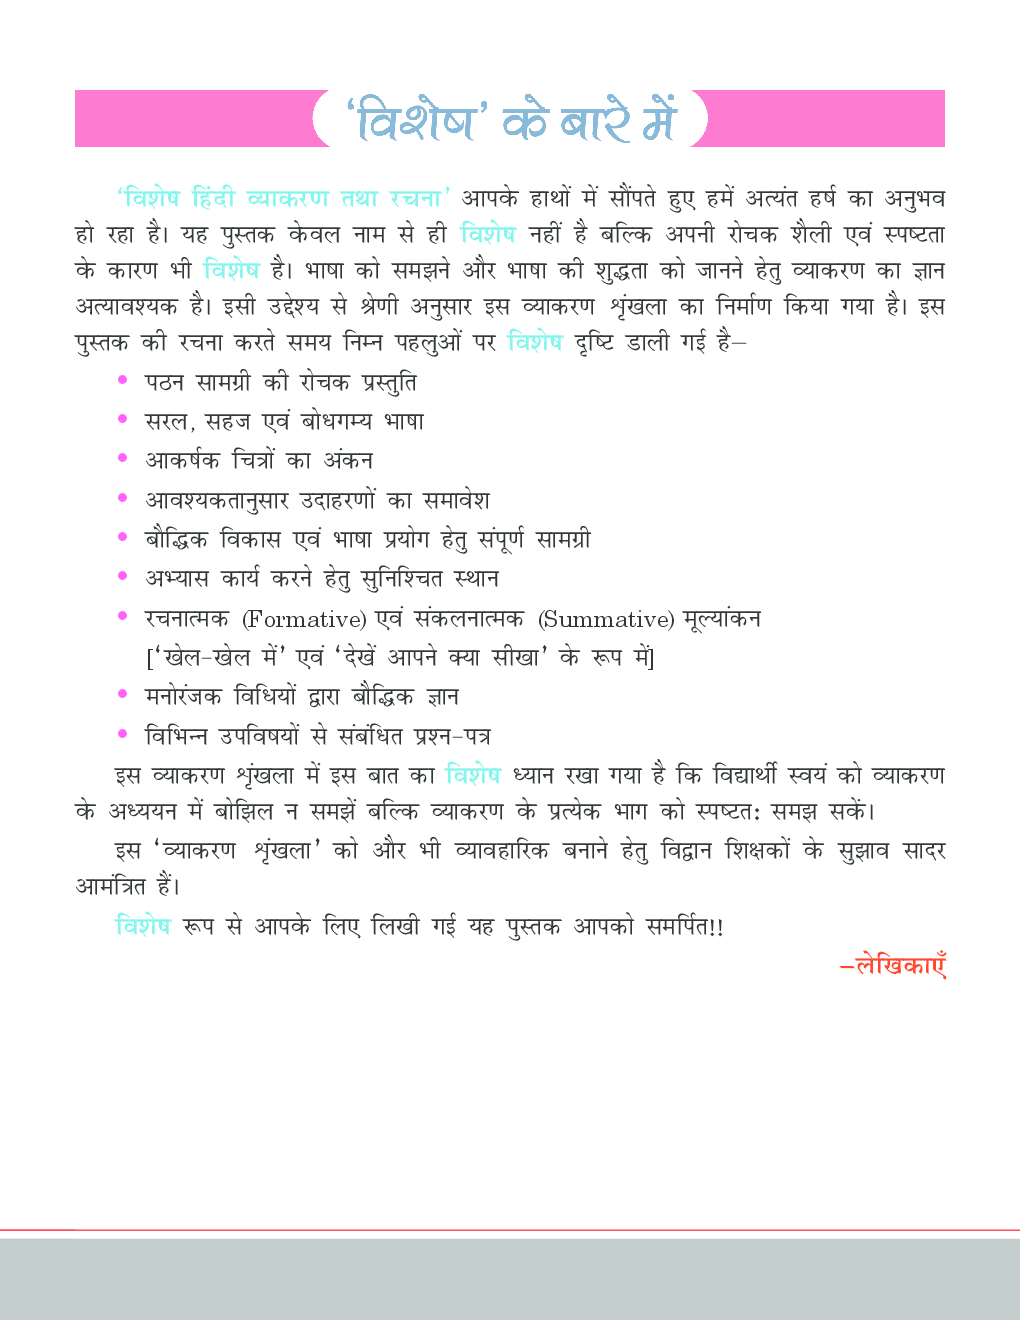 ‘विशेष’ के बारे में
‘विशेष हिंदी व्याकरण तथा रचना’ आपके हाथों में सौंपते हुए हमें अत्यंत हर्ष का अनुभव
हो रहा है। यह पुस्तक केवल नाम से ही विशेष नहीं है बल्कि अपनी रोचक शैली एवं स्पष्टता
के कारण भी विशेष है। भाषा को समझने और भाषा की शुद्धता को जानने हेतु व्याकरण का ज्ञान
अत्यावश्यक है। इसी उद्देश्य से श्रेणी अनुसार इस व्याकरण शृंखला का निर्माण किया गया है। इस
पुस्तक की रचना करते समय निम्न पहलुओं पर विशेष दृष्टि डाली गई है–
• पठन सामग्री की रोचक प्रस्तुति
• सरल, सहज एवं बोधगम्य भाषा
• आकर्षक चित्रों का अंकन
• आवश्यकतानुसार उदाहरणों का समावेश
• बौद्धिक विकास एवं भाषा प्रयोग हेतु संपूर्ण सामग्री
• अभ्यास कार्य करने हेतु सुनिश्चित स्थान
• रचनात्मक (Formative) एवं संकलनात्मक (Summative) मूल्यांकन
[‘खेल-खेल में’ एवं ‘देखें आपने क्या सीखा’ के रूप में]
• मनोरंजक विधियों द्वारा बौद्धिक ज्ञान
• विभिन्न उपविषयों से संबंधित प्रश्न-पत्र
इस व्याकरण शृंखला में इस बात का विशेष ध्यान रखा गया है कि विद्यार्थी स्वयं को व्याकरण
के अध्ययन में बोझिल न समझें बल्कि व्याकरण के प्रत्येक भाग को स्पष्टत: समझ सकें।
इस ‘व्याकरण शृंखला’ को और भी व्यावहारिक बनाने हेतु विद्वान शिक्षकों के सुझाव सादर
आमंत्रित हैं।
विशेष रूप से आपके लिए लिखी गई यह पुस्तक आपको समर्पित!!
–लेखिकाएँ